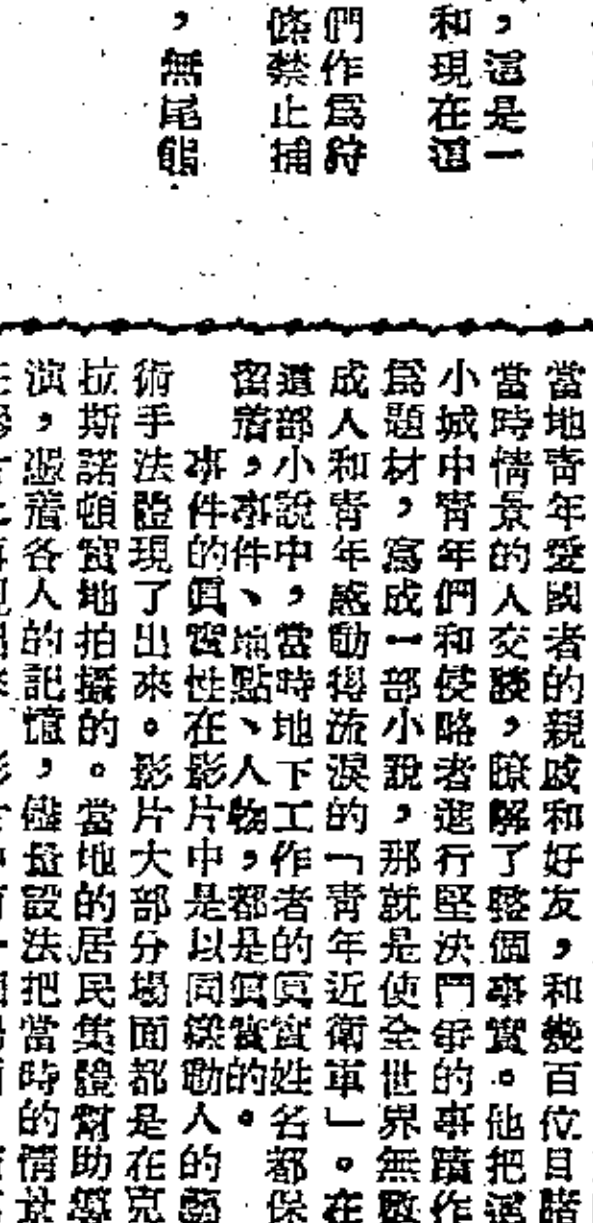 ，這是一
和現在這
們作爲狩
條禁止捕
，無尾熊
當地靑年愛國者的親戚和好友，和幾百位目睹
當時情景的人交談，瞭解了整個事實。他把這
小城中靑年們和侵略者進行堅決鬥爭的事蹟作
爲題材，寫成一部小說，那就是使全世界無數
成人和靑年感動得流淚的「靑年近衛軍」。在
這部小說中，當時地下工作者的眞實姓名都保
留着，事件、地點、人物，都是眞實的。
事件的眞實性在影片中是以同樣動人的藝
術手法體現了出來。影片大部分場面都是在克
拉斯諾頓實地拍攝的。當地的居民集體幫助導
演，憑着各人的記憶，儘量設法把當時的情